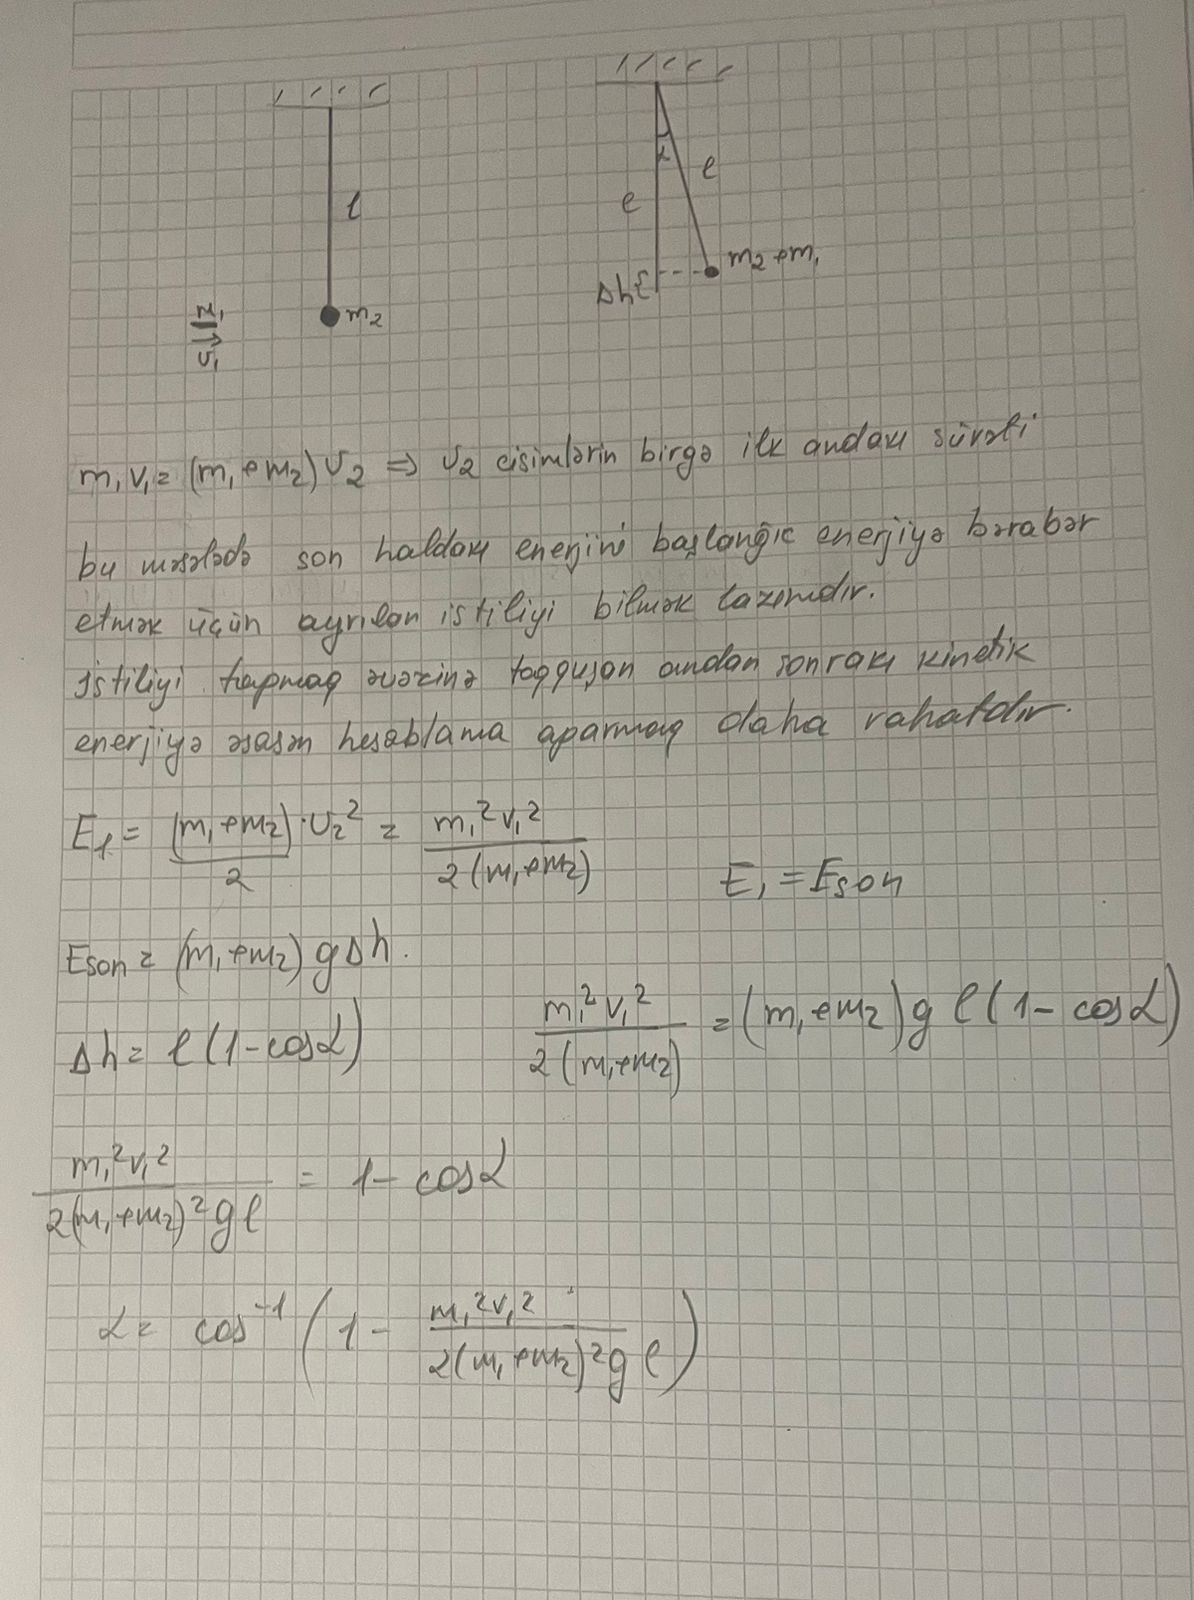 l
m₂
m₁
v₁
α
l
l
Δh{
m₂+m₁
m₁v₁ = (m₁+m₂)v₂ ⇒ v₂ cisimlərin birgə ilk andakı sürəti
bu məsələdə son haldakı enerjini başlanğıc enerjiyə bərabər
etmək üçün ayrılan istiliyi bilmək lazımdır.
istiliyi tapmaq əvəzinə toqquşan andan sonrakı kinetik
enerjiyə əsasən hesablama aparmaq daha rahatdır.
E₁ = (m₁+m₂)·v₂²/2 = m₁²v₁²/2(m₁+m₂)
E₁ = Eson
Eson = (m₁+m₂) gΔh.
Δh = l(1-cosα)
m₁²v₁²/2(m₁+m₂) = (m₁+m₂)g l(1-cosα)
m₁²v₁²/2(m₁+m₂)²gl = 1-cosα
α = cos⁻¹(1 - m₁²v₁²/2(m₁+m₂)²gl)